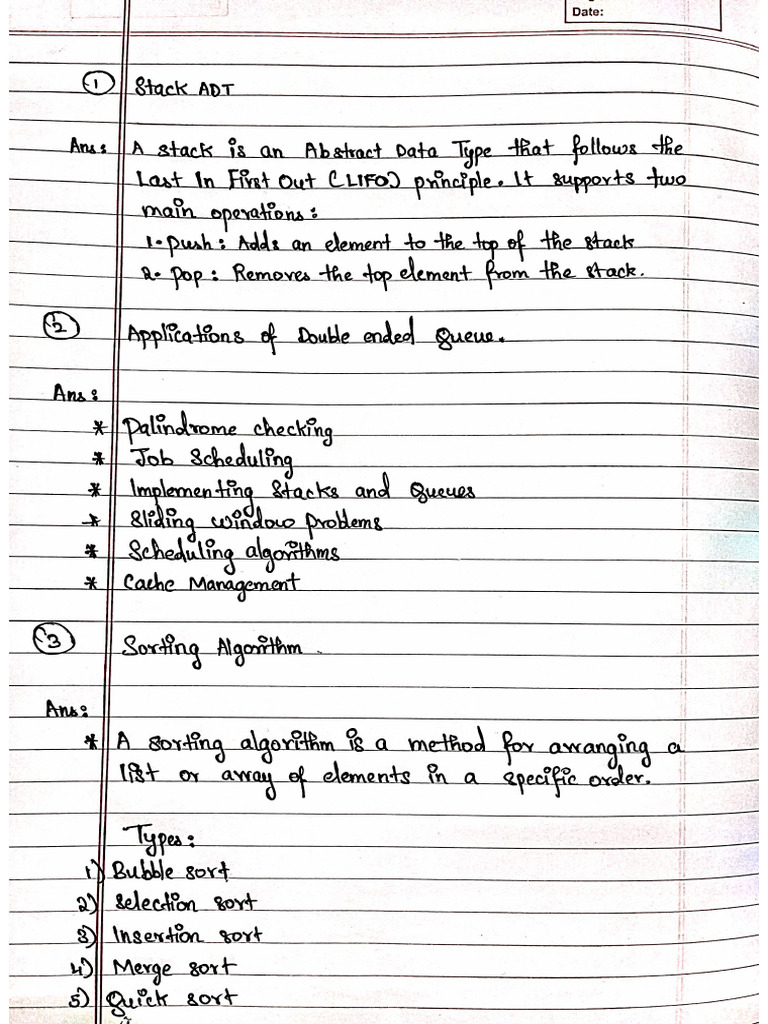 Date:
① Stack ADT
Ans: A stack is an Abstract Data Type that follows the
Last In First Out (LIFO) principle. It supports two
main operations:
1. push: Adds an element to the top of the stack
2. pop: Removes the top element from the stack.
② Applications of Double ended Queue.
Ans:
* Palindrome checking
* Job Scheduling
* Implementing Stacks and Queues
* Sliding window problems
* Scheduling algorithms
* Cache Management
③ Sorting Algorithm.
Ans:
* A sorting algorithm is a method for arranging a
list or array of elements in a specific order.
Types:
1) Bubble sort
2) Selection sort
3) Insertion sort
4) Merge sort
5) Quick sort